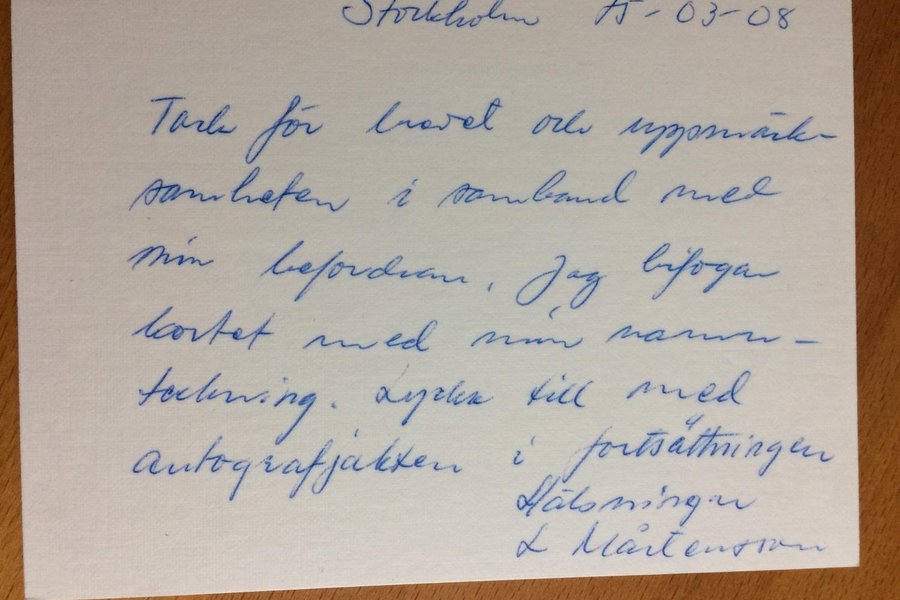 Stockholm 15-03-08
Tack för brevet och uppmärk-
samheten i samband med
min befordran. Jag bifogar
kortet med min namn-
teckning. Lycka till med
autografjakten i fortsättningen
Hälsningar
L Mårtensson